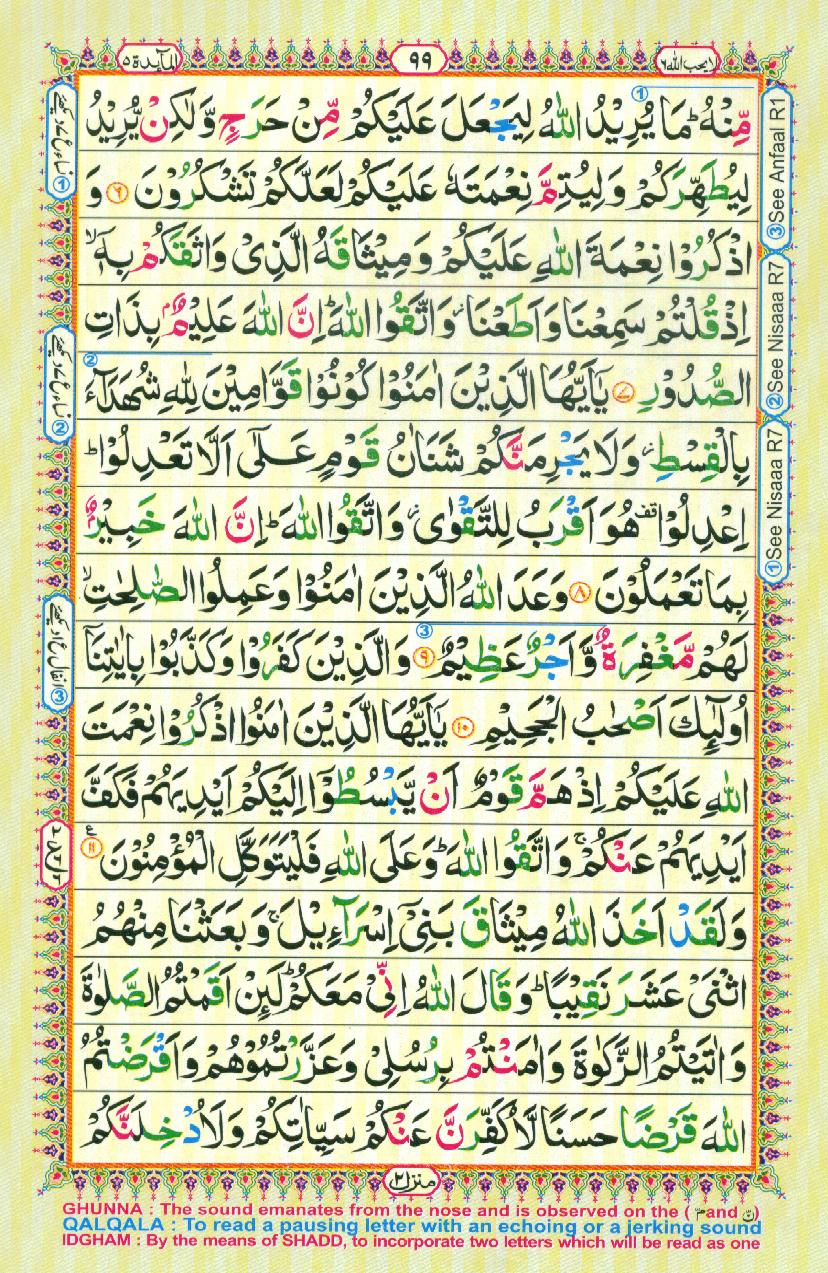 لا يحب الله ٦
٩٩
المآئدة ٥
مِّنْهُ ؕ مَا يُرِيْدُ اللّٰهُ لِيَجْعَلَ عَلَيْكُمْ مِّنْ حَرَجٍ وَّلٰكِنْ يُّرِيْدُ
لِيُطَهِّرَكُمْ وَلِيُتِمَّ نِعْمَتَهٗ عَلَيْكُمْ لَعَلَّكُمْ تَشْكُرُوْنَ ۶ وَ
اذْكُرُوْا نِعْمَةَ اللّٰهِ عَلَيْكُمْ وَمِيْثَاقَهُ الَّذِيْ وَاثَقَكُمْ بِهٖۤ ۙ
اِذْ قُلْتُمْ سَمِعْنَا وَاَطَعْنَا ؗ وَاتَّقُوا اللّٰهَ ؕ اِنَّ اللّٰهَ عَلِيْمٌۢ بِذَاتِ
الصُّدُوْرِ ۷ يٰۤاَيُّهَا الَّذِيْنَ اٰمَنُوْا كُوْنُوْا قَوّٰمِيْنَ لِلّٰهِ شُهَدَآءَ
بِالْقِسْطِ ؗ وَلَا يَجْرِمَنَّكُمْ شَنَاٰنُ قَوْمٍ عَلٰۤى اَلَّا تَعْدِلُوْا ؕ
اِعْدِلُوْا قف هُوَ اَقْرَبُ لِلتَّقْوٰى ؗ وَاتَّقُوا اللّٰهَ ؕ اِنَّ اللّٰهَ خَبِيْرٌۢ
بِمَا تَعْمَلُوْنَ ۸ وَعَدَ اللّٰهُ الَّذِيْنَ اٰمَنُوْا وَعَمِلُوا الصّٰلِحٰتِ ۙ
لَهُمْ مَّغْفِرَةٌ وَّاَجْرٌ عَظِيْمٌ ۹ وَالَّذِيْنَ كَفَرُوْا وَكَذَّبُوْا بِاٰيٰتِنَاۤ
اُولٰٓئِكَ اَصْحٰبُ الْجَحِيْمِ ۱۰ يٰۤاَيُّهَا الَّذِيْنَ اٰمَنُوا اذْكُرُوْا نِعْمَتَ
اللّٰهِ عَلَيْكُمْ اِذْ هَمَّ قَوْمٌ اَنْ يَّبْسُطُوْۤا اِلَيْكُمْ اَيْدِيَهُمْ فَكَفَّ
اَيْدِيَهُمْ عَنْكُمْ ۚ وَاتَّقُوا اللّٰهَ ؕ وَعَلَى اللّٰهِ فَلْيَتَوَكَّلِ الْمُؤْمِنُوْنَ ۱۱
وَلَقَدْ اَخَذَ اللّٰهُ مِيْثَاقَ بَنِيْۤ اِسْرَآءِيْلَ ۚ وَبَعَثْنَا مِنْهُمُ
اثْنَيْ عَشَرَ نَقِيْبًا ؕ وَقَالَ اللّٰهُ اِنِّيْ مَعَكُمْ ؕ لَئِنْ اَقَمْتُمُ الصَّلٰوةَ
وَاٰتَيْتُمُ الزَّكٰوةَ وَاٰمَنْتُمْ بِرُسُلِيْ وَعَزَّرْتُمُوْهُمْ وَاَقْرَضْتُمُ
اللّٰهَ قَرْضًا حَسَنًا لَّاُكَفِّرَنَّ عَنْكُمْ سَيِّاٰتِكُمْ وَلَاُدْخِلَنَّكُمْ
③See Anfaal R1
②See Nisaaa R7
①See Nisaaa R7
منزل ٢
GHUNNA : The sound emanates from the nose and is observed on the ( مّ and نّ )
QALQALA : To read a pausing letter with an echoing or a jerking sound
IDGHAM : By the means of SHADD, to incorporate two letters which will be read as one